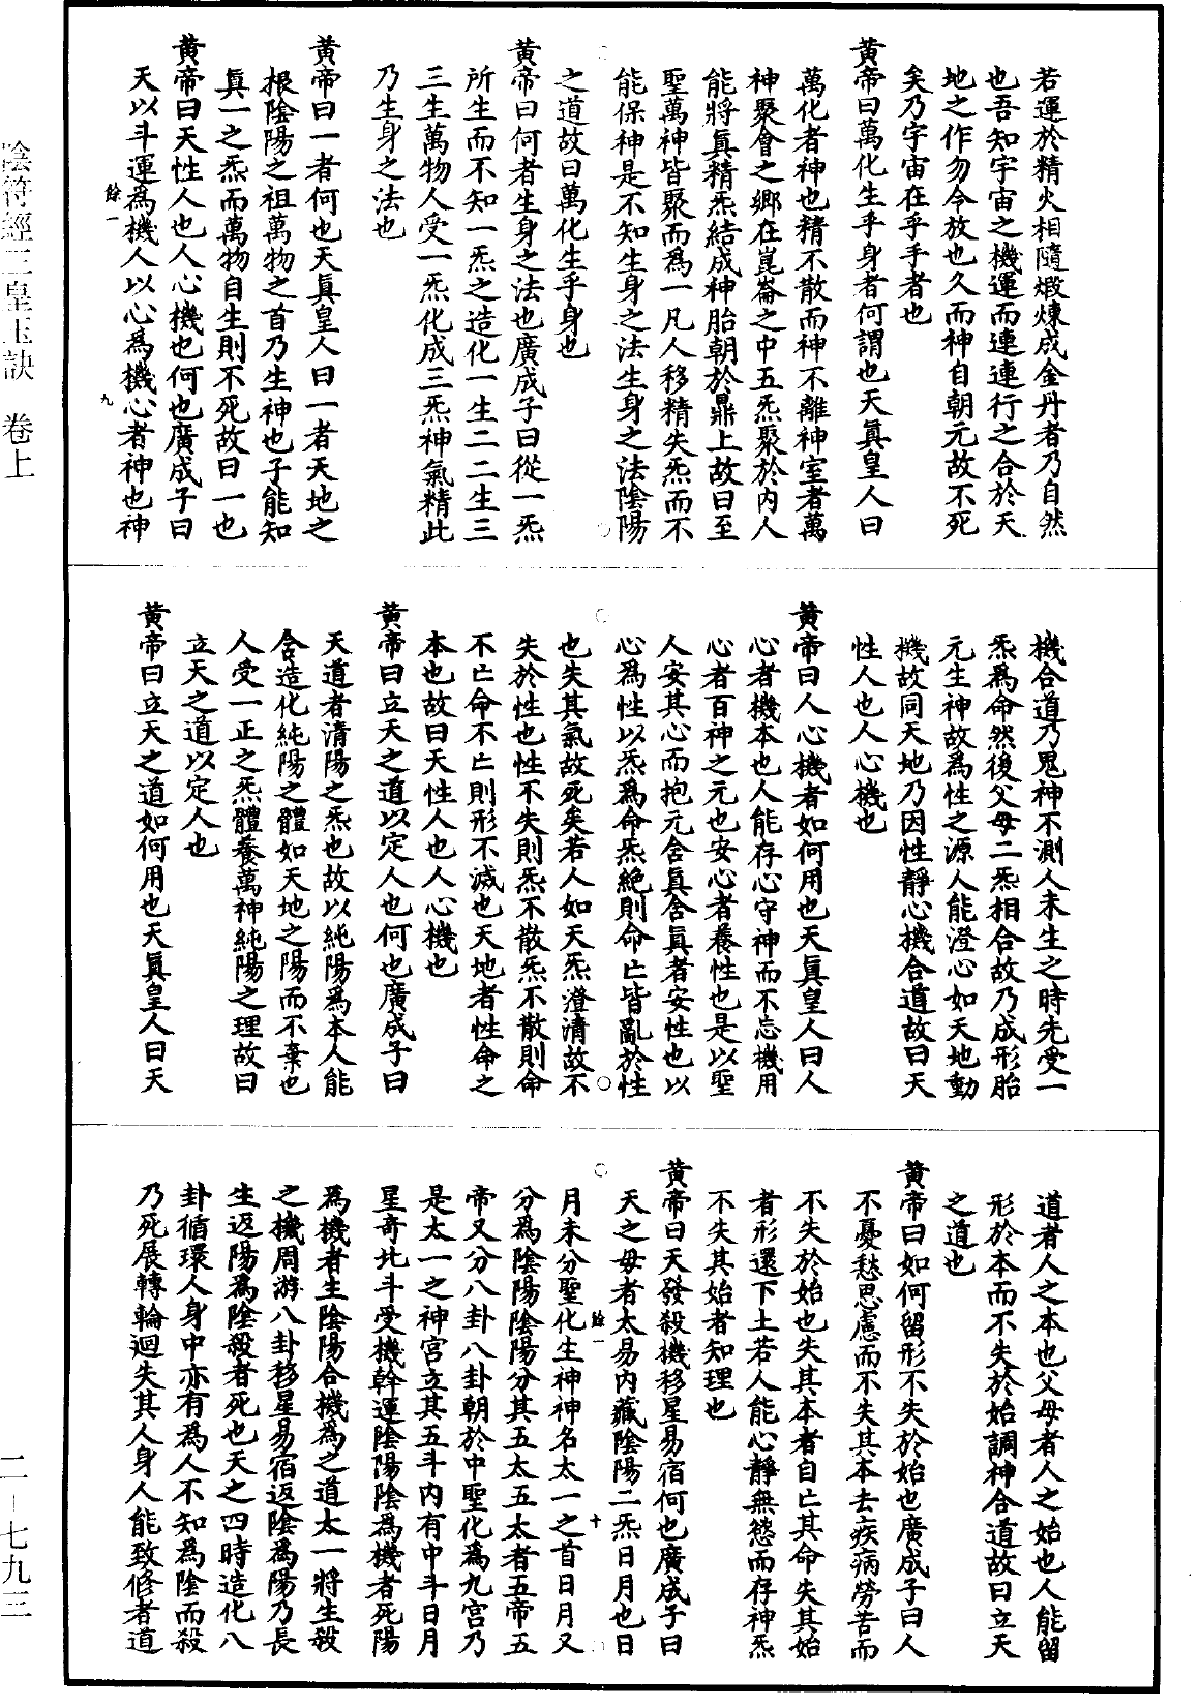 若運於精火相隨煅煉成金丹者乃自然
也吾知宇宙之機運而連連行之合於天
地之作勿令放也久而神自朝元故不死
矣乃宇宙在乎手者也
黄帝曰萬化生乎身者何謂也天真皇人曰
萬化者神也精不散而神不離神室者萬
神聚會之鄉在崑崙之中五炁聚於內人
能將真精炁結成神胎朝於鼎上故曰至
聖萬神皆聚而為一凡人移精失炁而不
能保神是不知生身之法生身之法陰陽
之道故曰萬化生乎身也
黄帝曰何者生身之法也廣成子曰從一炁
所生而不知一炁之造化一生二二生三
三生萬物人受一炁化成三炁神氣精此
乃生身之法也
黄帝曰一者何也天真皇人曰一者天地之
根陰陽之祖萬物之首乃生神也子能知
真一之炁而萬物自生則不死故曰一也
黄帝曰天性人也人心機也何也廣成子曰
天以斗運為機人以心為機心者神也神
餘一
九
機合道乃鬼神不測人未生之時先受一
炁為命然後父母二炁相合故乃成形胎
元生神故為性之源人能澄心如天地動
機故同天地乃因性靜心機合道故曰天
性人也人心機也
黄帝曰人心機者如何用也天真皇人曰人
心者機本也人能存心守神而不忘機用
心者百神之元也安心者養性也是以聖
人安其心而抱元含真含真者安性也以
心為性以炁為命炁絕則命亡皆亂於性
也失其氣故死矣若人如天炁澄清故不
失於性也性不失則炁不散炁不散則命
不亡命不亡則形不滅也天地者性命之
本也故曰天性人也人心機也
黄帝曰立天之道以定人也何也廣成子曰
天道者清陽之炁也故以純陽為本人能
含造化純陽之體如天地之陽而不棄也
人受一正之炁體養萬神純陽之理故曰
立天之道以定人也
黄帝曰立天之道如何用也天真皇人曰天
道者人之本也父母者人之始也人能留
形於本而不失於始調神合道故曰立天
之道也
黄帝曰如何留形不失於始也廣成子曰人
不憂愁思慮而不失其本去疾病勞苦而
不失於始也失其本者自亡其命失其始
者形還下土若人能心靜無慾而存神炁
不失其始者知理也
黄帝曰天發殺機移星易宿何也廣成子曰
天之毋者太易內藏陰陽二炁日月也日
餘一
十
月未分聖化生神神名太一之首日月又
分為陰陽陰陽分其五太五太者五帝五
帝又分八卦八卦朝於中聖化為九宮乃
是太一之神宮立其五斗內有中斗日月
星奇北斗受機斡運陰陽陰為機者死陽
為機者生陰陽合機為之道太一將生殺
之機周游八卦移星易宿返陰為陽乃長
生返陽為陰殺者死也天之四時造化八
卦循環人身中亦有為人不知為陰而殺
乃死展轉輪迴失其人身人能致修者道
陰符經三皇玉訣 卷上
二－七九三